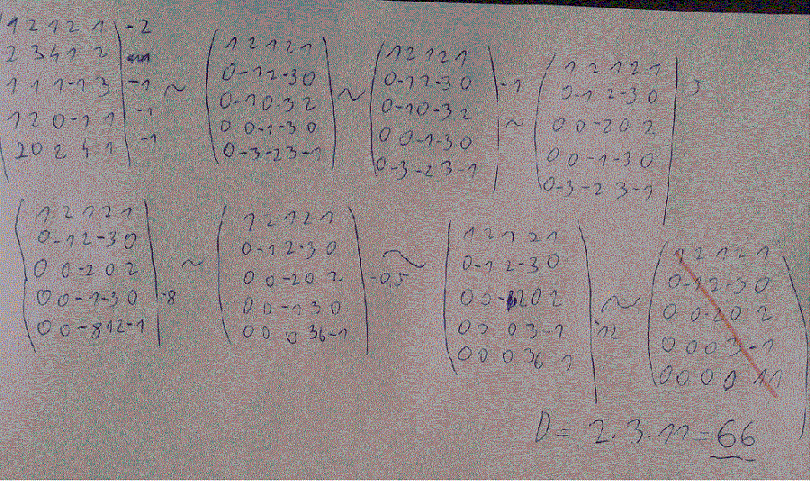 1 2 1 2 1 -2
2 3 4 1 2
1 1 1 -1 3 -1
1 2 0 -1 1 -1
2 0 2 4 1 -1
~
1 2 1 2 1
0 -1 2 -3 0
0 -1 0 -3 2
0 0 -1 -3 0
0 -3 -2 3 -1
~
1 2 1 2 1
0 -1 2 -3 0 -1
0 -1 0 -3 2
0 0 -1 -3 0
0 -3 -2 3 -1
~
1 2 1 2 1
0 -1 2 -3 0
0 0 -2 0 2
0 0 -1 -3 0
0 -3 -2 3 -1
1 2 1 2 1
0 -1 2 -3 0
0 0 -2 0 2
0 0 -1 -3 0 -8
0 0 -8 12 -1
~
1 2 1 2 1
0 -1 2 -3 0
0 0 -2 0 2 -0,5
0 0 -1 3 0
0 0 0 36 -1
~
1 2 1 2 1
0 -1 2 -3 0
0 0 -2 0 2
0 0 0 3 -1 -12
0 0 0 36 1
~
1 2 1 2 1
0 -1 2 -3 0
0 0 -2 0 2
0 0 0 3 -1
0 0 0 0 11
D = 2 · 3 · 11 = 66